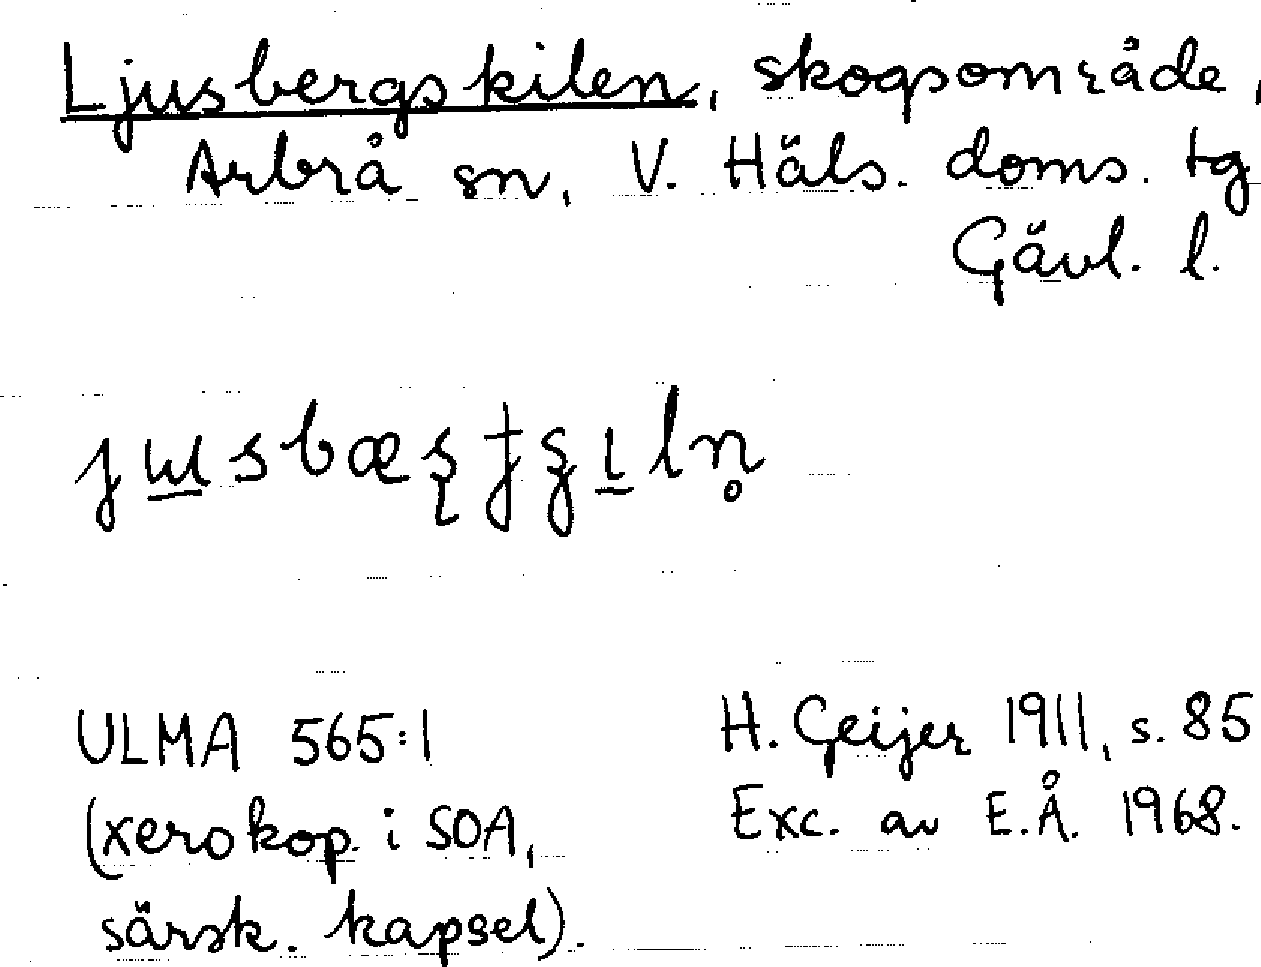 Ljusbergskilen, skogsområde,
Arbrå sn, V. Häls. doms. tg
Gävl. l.
ULMA 565:1
(xerokop. i SOA,
särsk. kapsel).
H. Geijer 1911, s. 85
Exc. av E.Å. 1968.